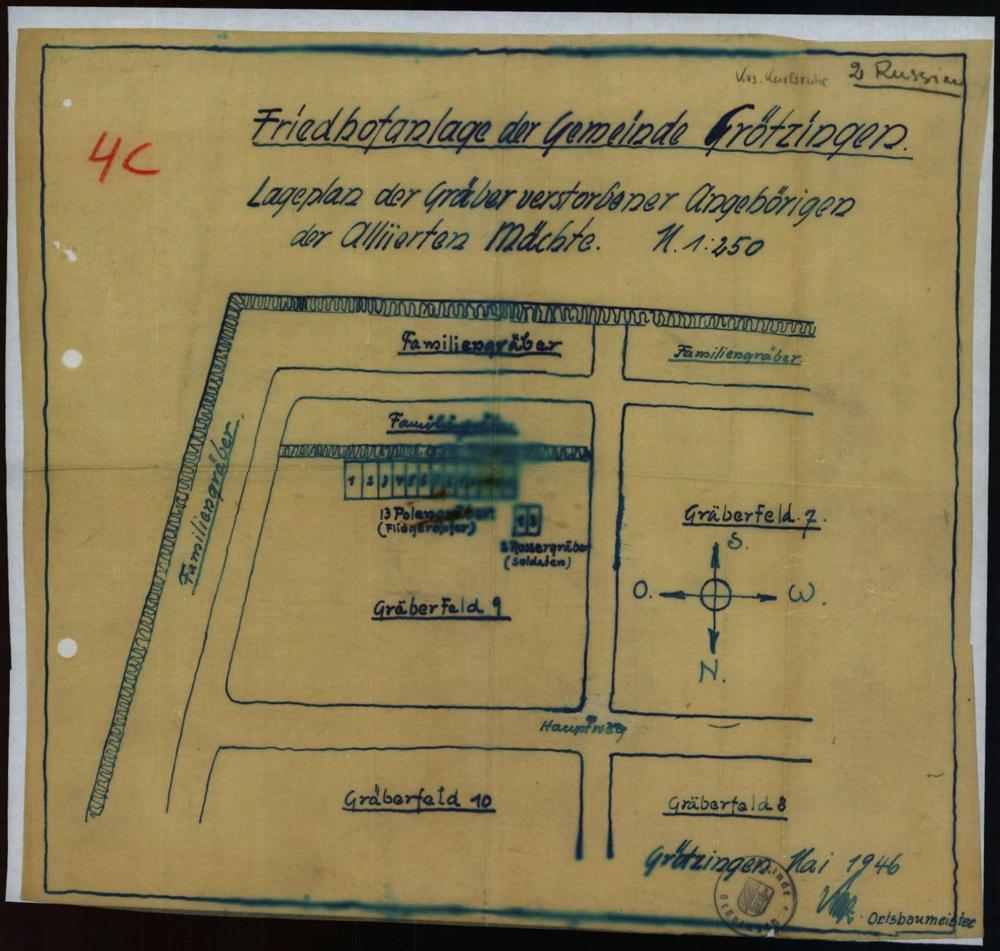 Krs. Karlsruhe
2 Russian
4C
Friedhofanlage der Gemeinde Grötzingen.
Lageplan der Gräber verstorbener Angehörigen
der Alliierten Mächte. M. 1:250
Familiengräber
Familiengräber.
Familiengräber
Familiengräber.
1 2 3 4 5 6 7
13 Polengräber
(Fliegeropfer)
1 2
2 Russengräber
(Soldaten)
Gräberfeld 9
Gräberfeld 7
S.
O. W.
N.
Hauptweg
Gräberfeld 10
Gräberfeld 8
Grötzingen, Mai 1946
Gemeinde
Grötzingen
Ortsbaumeister